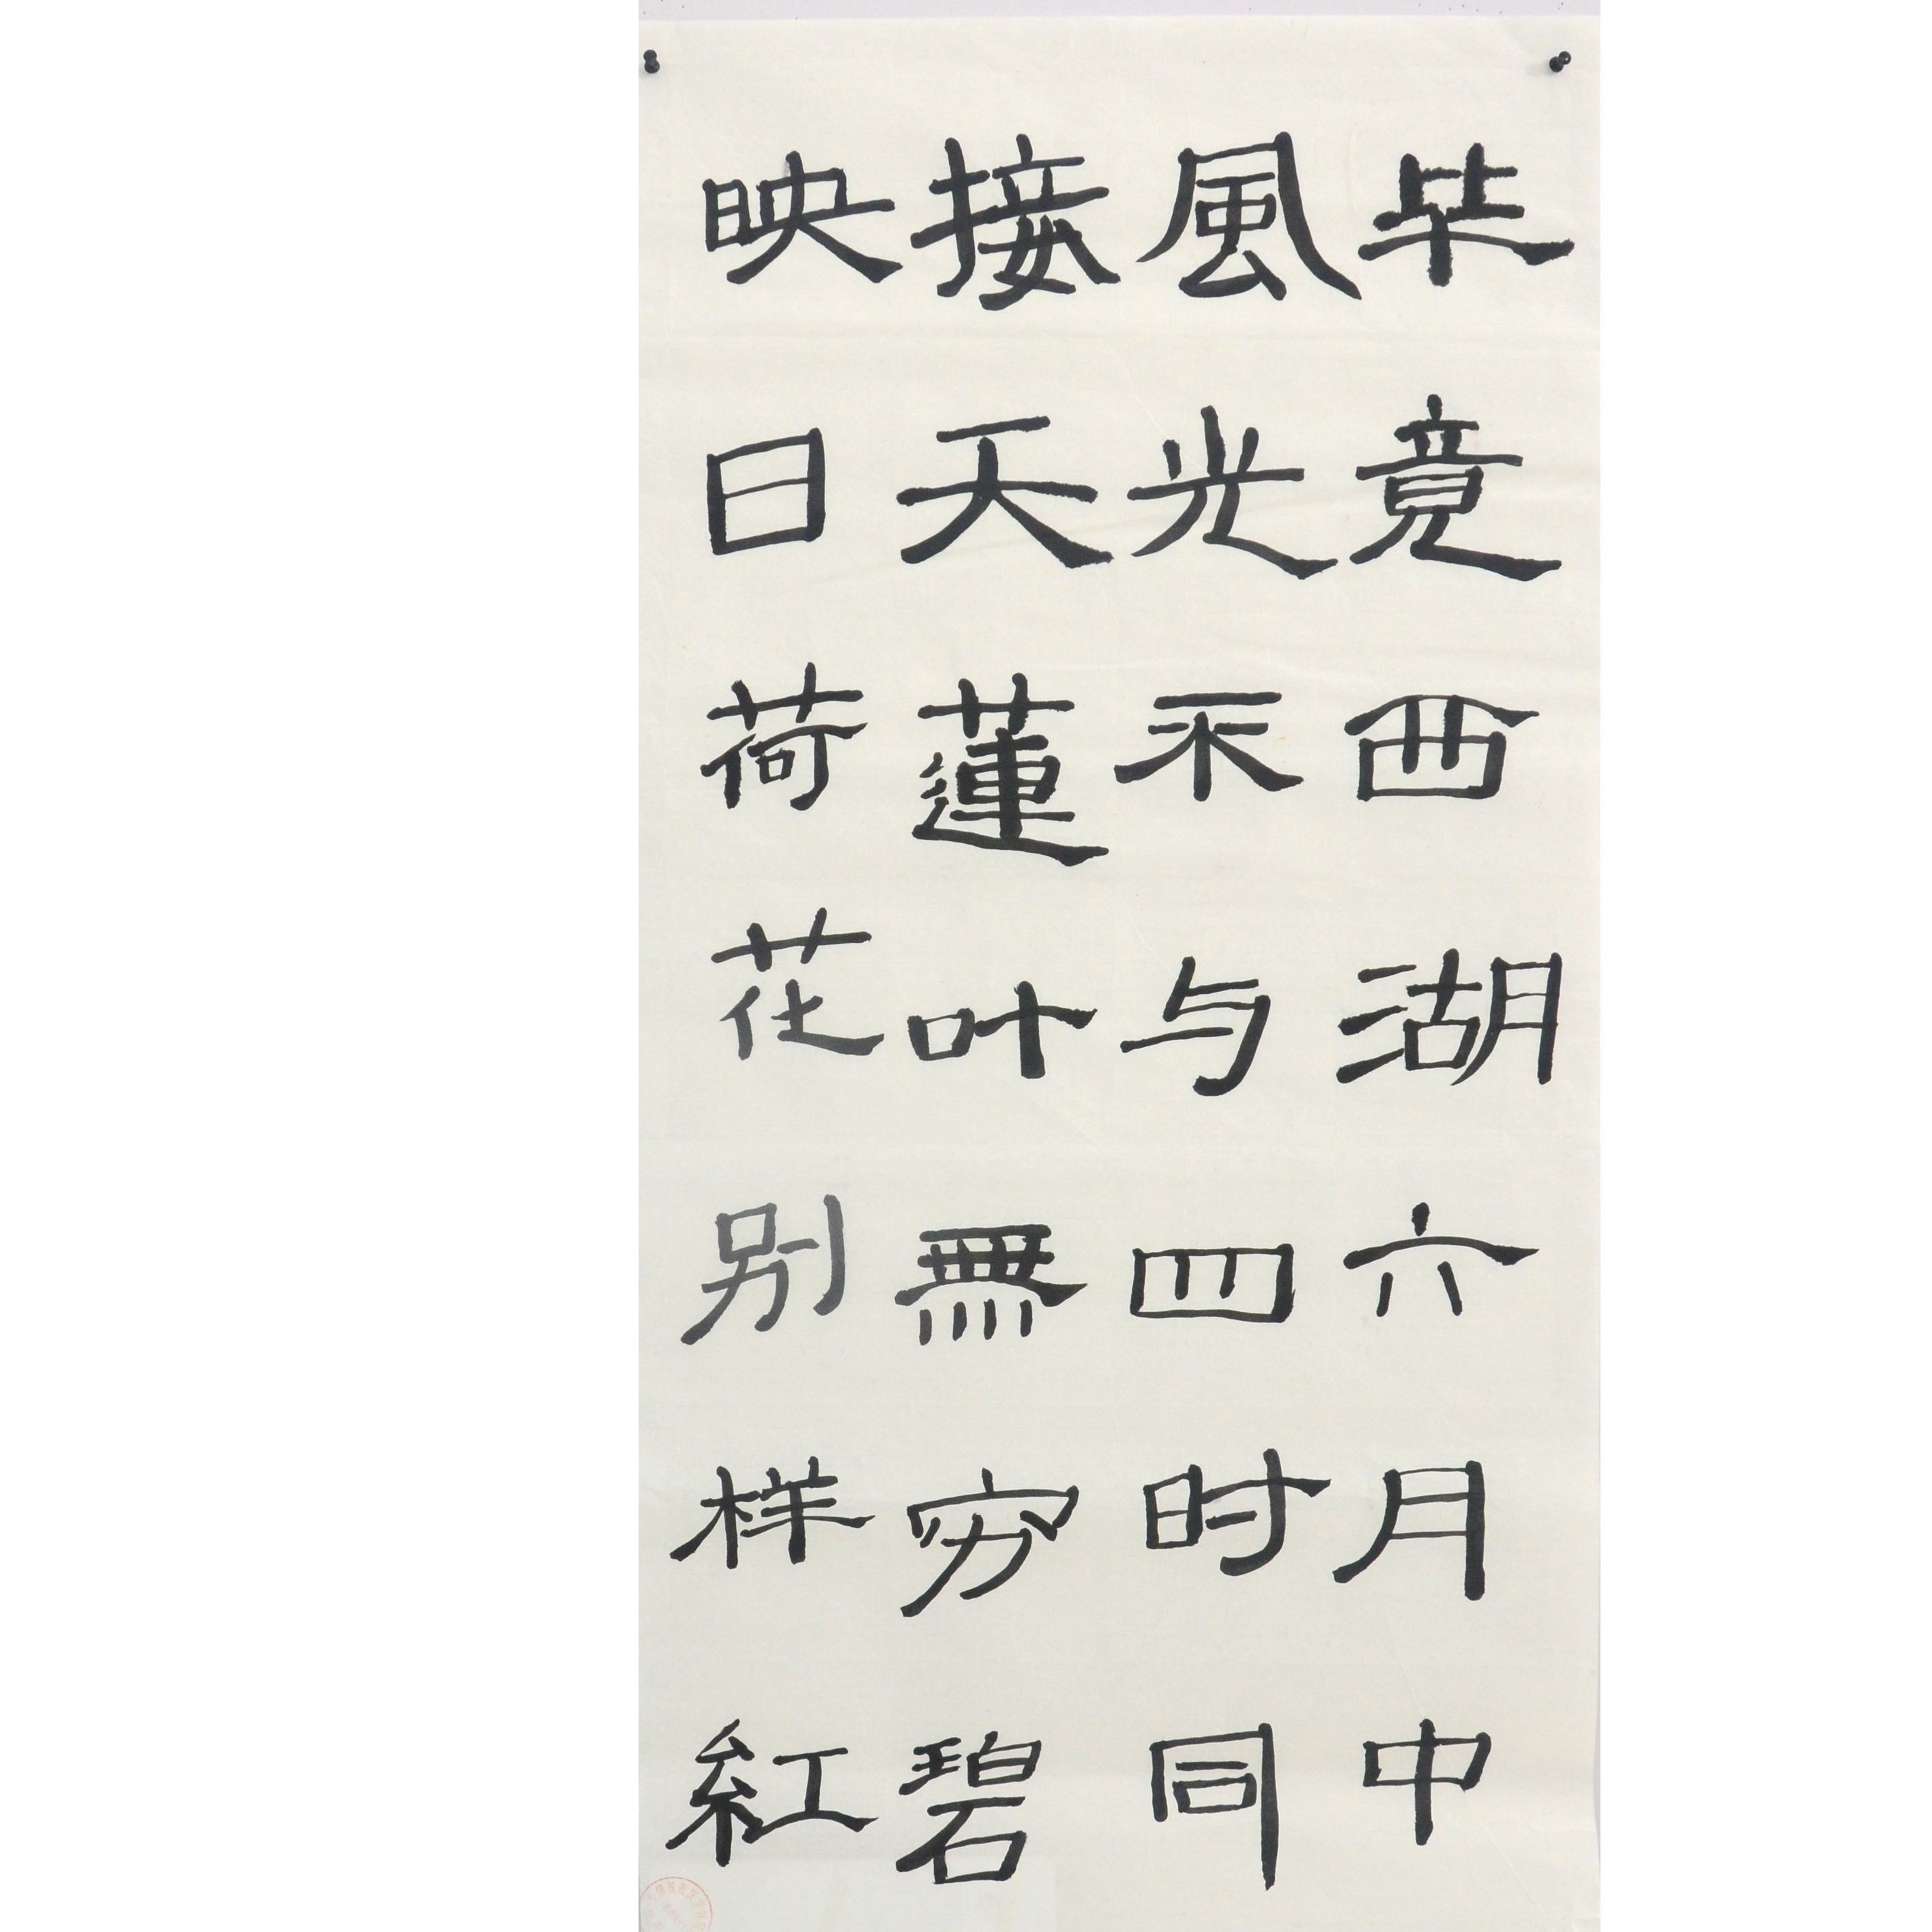 毕竟西湖六月中
風光不与四时同
接天蓮叶無穷碧
映日荷花别样紅